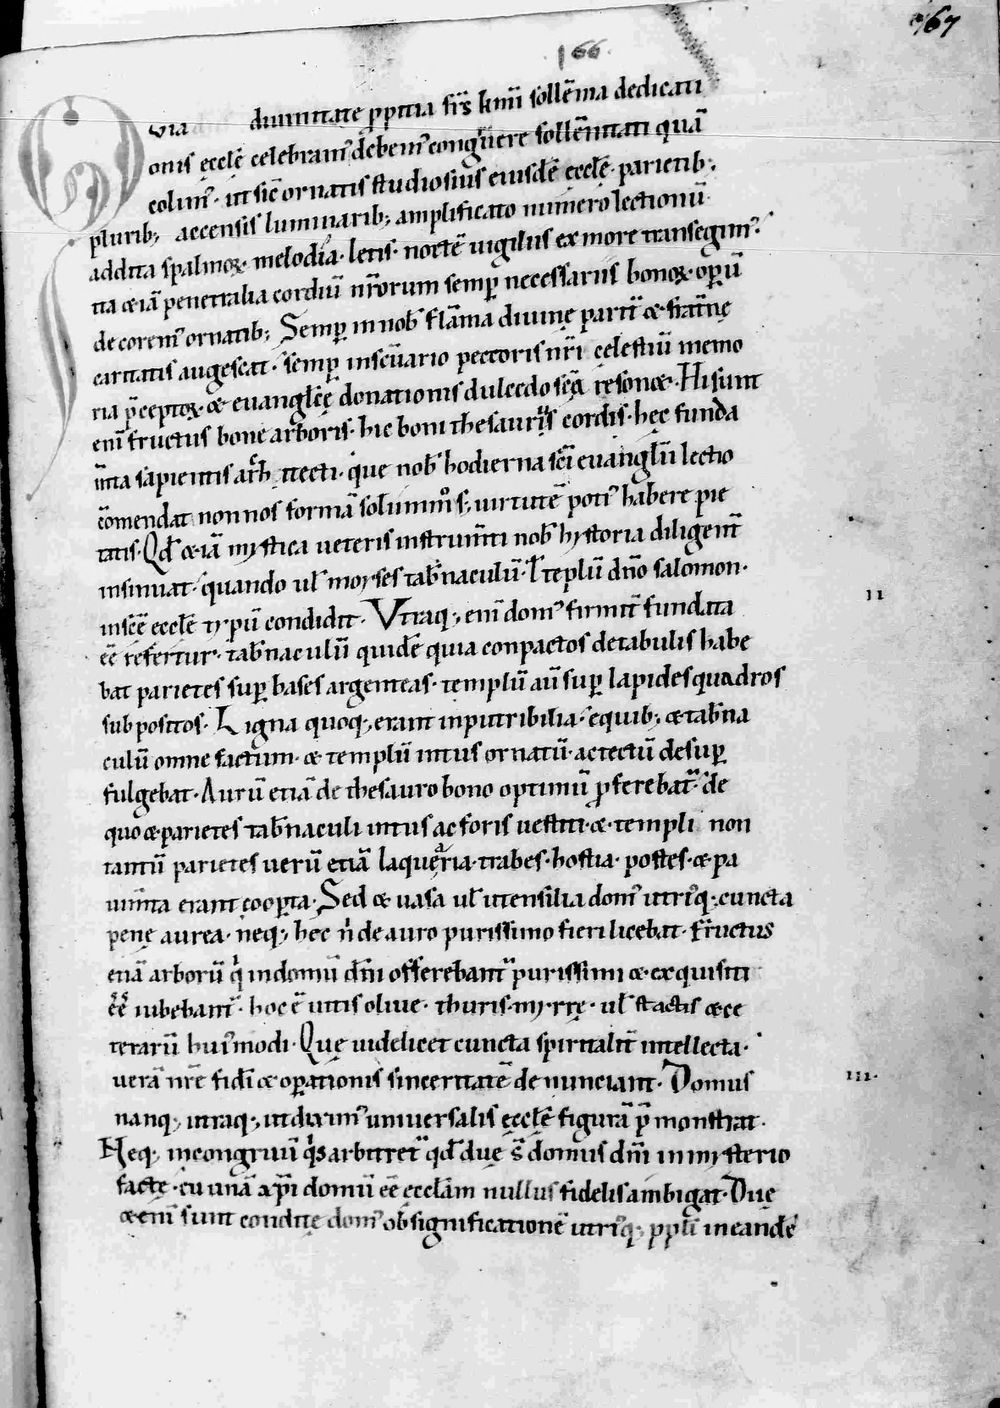 167
166
Quia diuinitate ꝓpitia frs̄ kmī sollēnia dedicati
onis ęcclę̄ celebramꝰ debemꝰ congruere sollēnitati quā
colimꝰ · ut sic̄ ornatis studiosius eiusdē ęcclę̄ · parietib;
plurib; accensis luminarib; amplificato numero lectionū
addita spalmoꝝ · melodia · letis · noctē uigiliis ex more transegimꝰ ·
ita & iā penetralia cordiū nr̄orum semꝑ necessariis bonoꝝ · oꝑū
decoremꝰ ornatib; Semꝑ in nob̄ flāma diuinę parit̄ & frat̄nę
caritatis augescat · semꝑ in secr̄ario pectoris nr̄i cęlestiū memo
ria p̄ceptoꝝ · & euangl̄icę donationis dulcedo sc̄a resonet · Hi sunt
enī fructus bonę arboris · hic boni thesaurus cordis · hęc funda
m̄ta sapientis arch̄itecti · quę nob̄ hodierna sc̄i euangl̄ii lectio
cōmendat non nos formā solummᵒ s; uirtutē potiꝰ habere pie
tatis · Qd̄ & iā mystica ueteris instrum̄ti nob̄ hystoria diligent̄
insinuat · quando ul̄ moyses tab̄naculū · ł tēplū dn̄o salomon ·
in sc̄ę ęcclę̄ typū condidit · Vtraq; enī domꝰ firmit̄ fundata
eē refertur · tab̄naculū quidē quia conpactos de tabulis habe
bat parietes suꝑ bases argenteas · templū aū suꝑ lapides quadros
subpositos · Ligna quoq; erant inputribilia · e quib; & tab̄na
culū omne factum · & templū intus ornatū · ac tectū desuꝑ
fulgebat · Aurū etiā de thesauro bono optimū p̄ferebat̄ · de
quo & parietes tab̄naculi intus ac foris uestiti · & · templi non
tantū parietes uerū etiā laquearia · trabes · hostia · postes · & pa
uim̄ta erant cooꝑta · Sed & uasa ul̄ utensilia domꝰ utriꝰq; cuncta
penę aurea · neq; hęc n̄ de auro purissimo fieri licebat · Fructus
etiā arborū qͥ in domū dn̄i offerebant̄ purissimi & exquisiti
eē̄ iubebant̄ · hoc ē uitis oliuę · thuris · myrrę · ul̄ stactis & ce
terarū huiꝰmodi · Quę uidelicet cuncta spiritalit̄ intellecta ·
uerā nrę̄ fidī & oꝑationis sinceritatē denunciant · Domus
nanq; utraq; ut diximꝰ uniuersalis ęcclę̄ figurā p̄monstrat ·
Neq; incongruū qͥs arbitret̄ qd̄ duę s̄ domus dn̄i in mysterio
factę · cu unā xp̄i domū eē ęccl̄am nullus fidelis ambigat · Duę
& enī sunt conditę domꝰ ob significationē utriꝰq; ꝓpl̄i in eandē
II
III ·